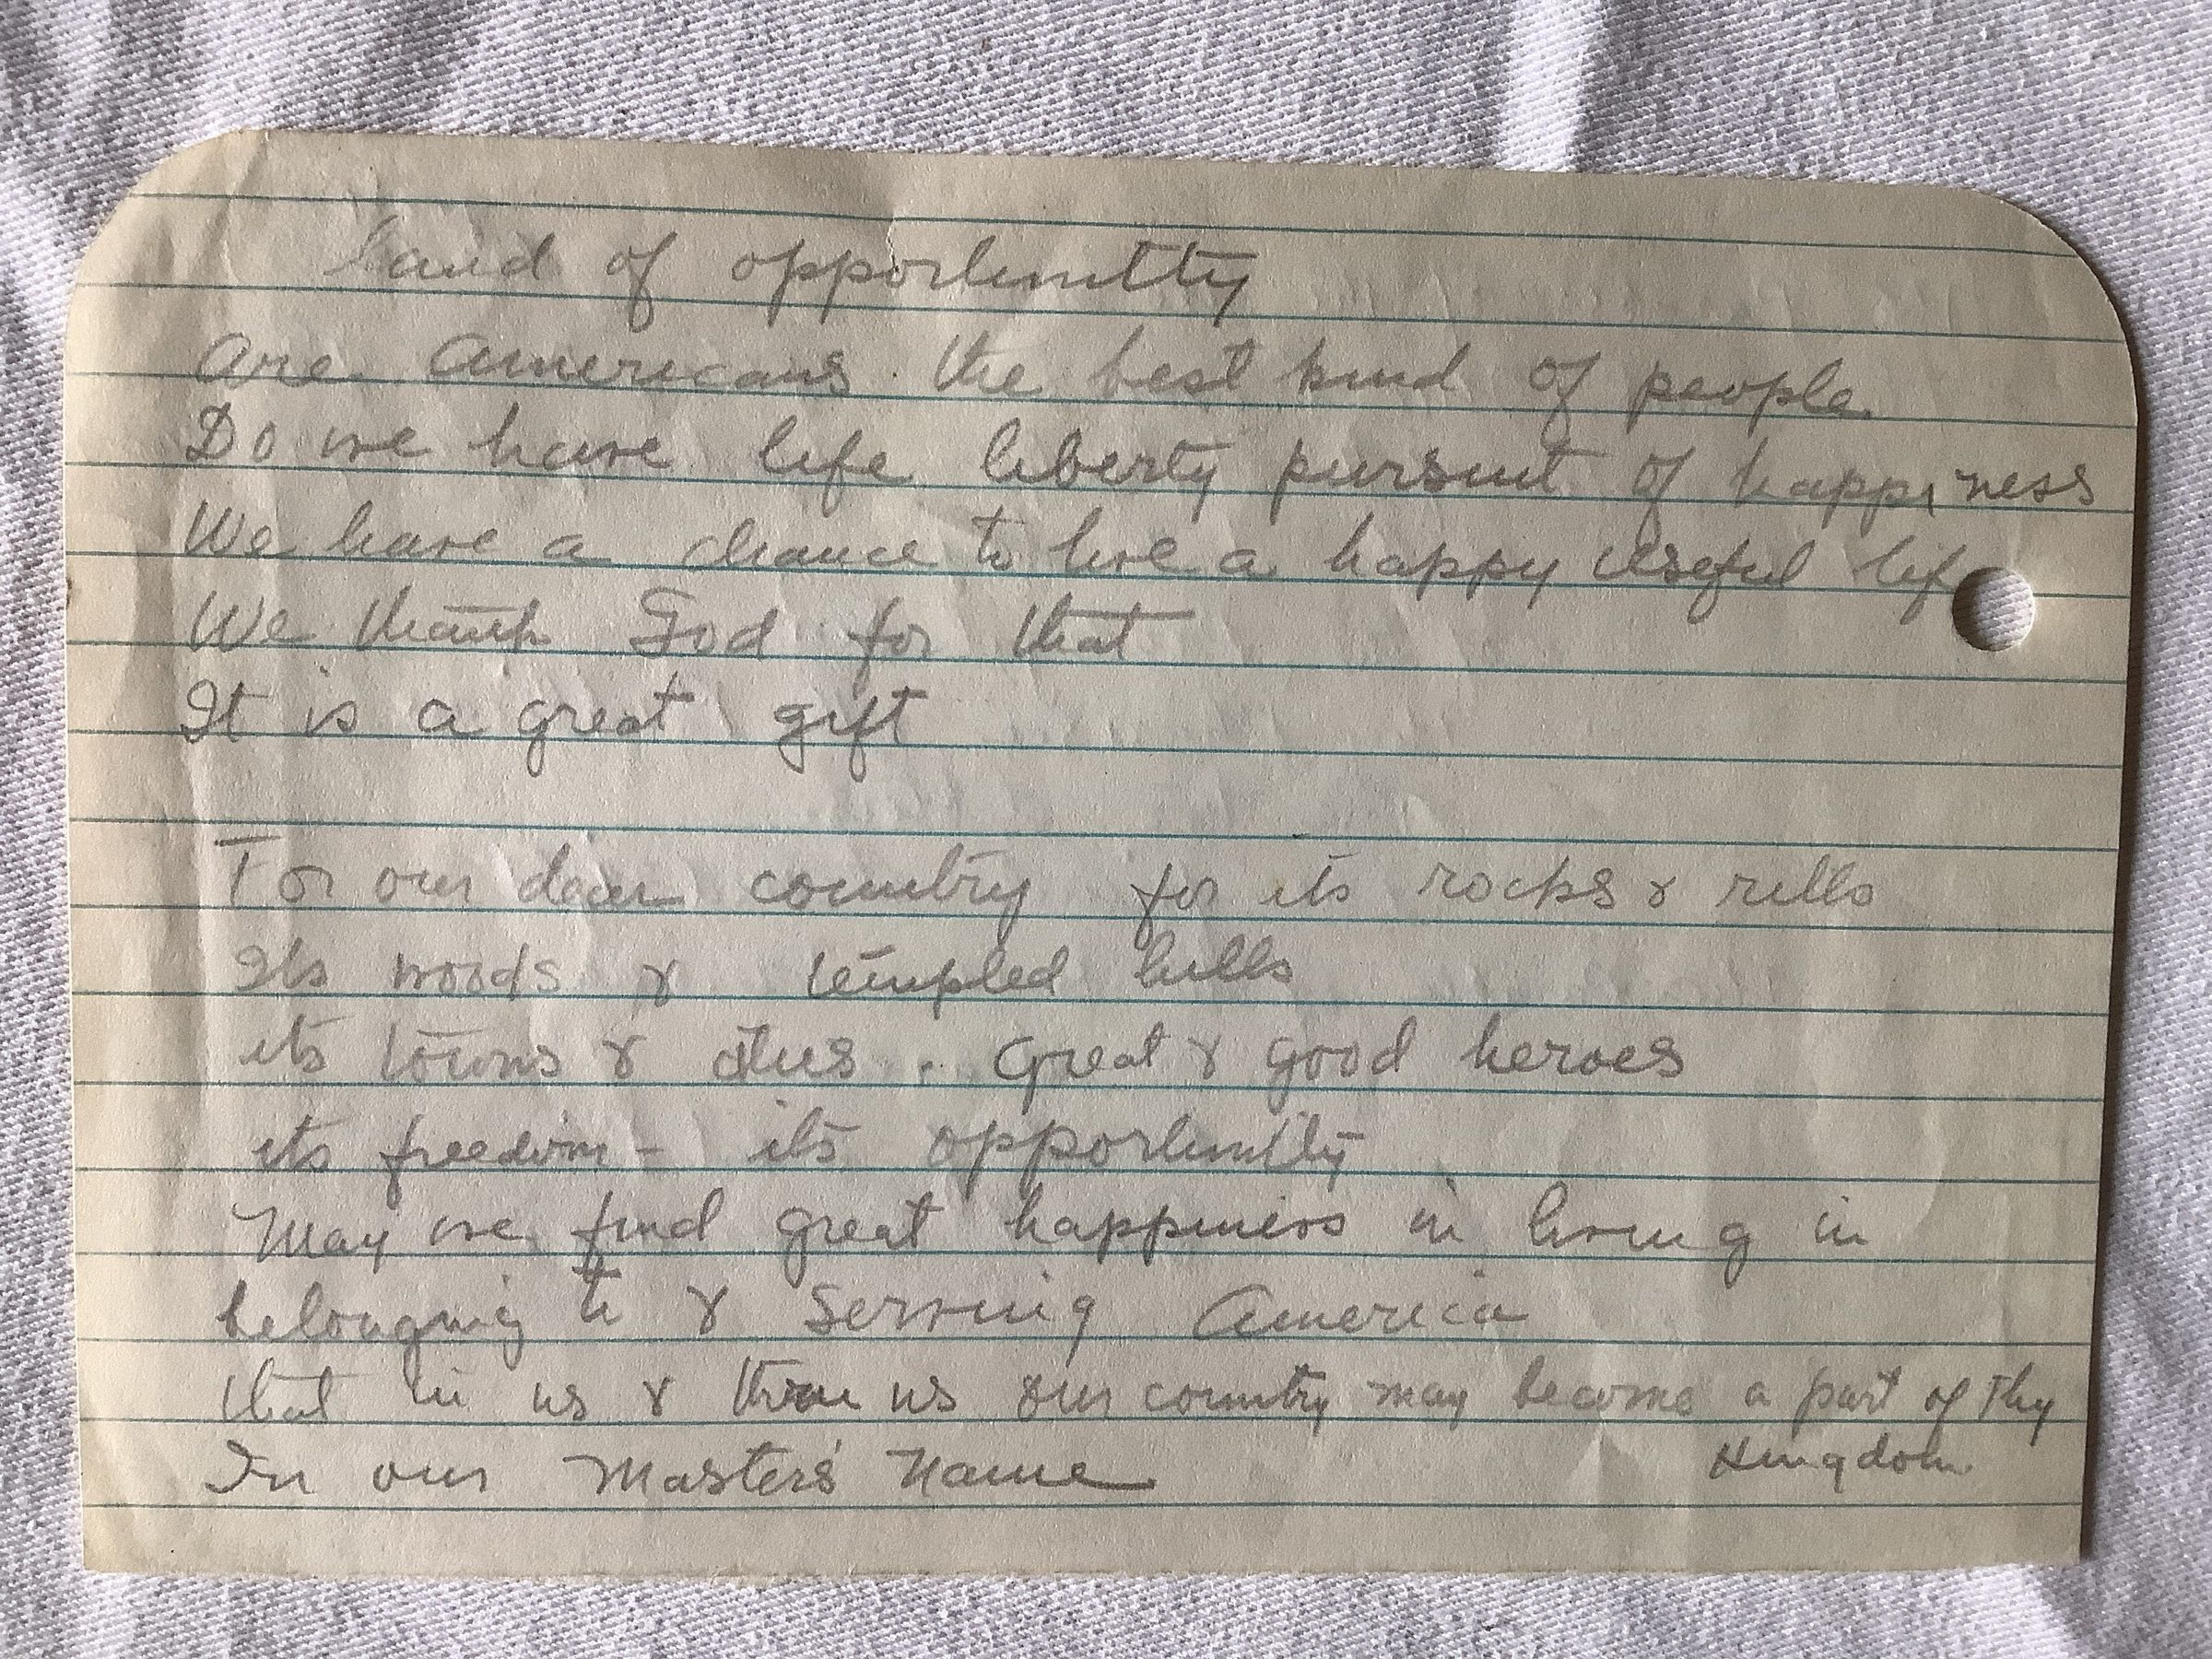 Land of opportunitty
Are Americans the best kind of people
Do we have life liberty pursuit of happiness
We have a chance to live a happy useful lif
We thank God for that
It is a great gift
For our dear country for its rocks & rills
Its woods & templed hills
its towns & cities. Great & good heroes
its freedom - its opportunity
May we find great happiness in living in
belonging to & serving America
that in us & thru us our country may become a part of Thy
Kingdom
In our Master's Name